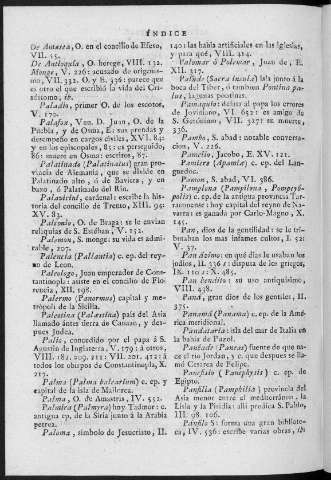 ÍNDICE
De Amasea, O. en el concilio de Efeso,
VII. 55.
De Antioquía, O. herege, VIII. 132.
Monge, V. 226: acusado de origenis-
mo, VII. 332. O. y E. 336: parece que
es otro el que escribió la vida del Cri-
sóstomo, ib.
Paladio, primer O. de los escotos,
V. 170.
Palafox, Ven. D. Juan, O. de la
Puebla, y de Osma, E: sus prendas y
desempeño en cargos civiles, XVI. 84:
y en los episcopales, 85: es perseguido,
86: muere en Osma: escritos, 87.
Palatinado (Palatinatus) gran pro-
vincia de Alemania, que se divide en
Palatinado alto, ó de Baviera, y en
baxo, ó Palatinado del Rin.
Palavicini, cardenal: escribe la his-
toria del concilio de Trento, XIII. 95:
XV. 83.
Palemio, O. de Braga: se le envian
reliquias de S. Estéban, V. 152.
Palemon, S. monge: su vida es admi-
rable, 207.
Palencia (Pallantia) c. ep. del rey-
no de Leon.
Paleologo, Juan emperador de Cons-
tantinopla: asiste en el concilio de Flo-
rencia, XII. 198.
Palermo (Panormus) capital y me-
trópoli de la Sicilia.
Palestina (Palæstina) país del Asia
llamado ántes tierra de Canaan, y des-
pues Judea.
Palio, concedido por el papa á S.
Agustin de Inglaterra, V. 179: á otros,
VIII. 182. 209. 211: VII. 201. 422: á
todos los obispos de Constantinopla, X.
217.
Palma (Palma balearium) c. ep. y
capital de la isla de Mallorca.
Palma, O. de Amastria, IV. 552.
Palmira (Palmyra) hoy Tadmor: c.
antigua ep. de la Siria junto á la Arabia
petrea.
Paloma, símbolo de Jesucristo, II.
140: las habia artificiales en las Iglesias,
y para qué, VIII. 214.
Palomar ó Polemar, Juan de, E.
XII. 317.
Palude (Sacra insula) isla junto á la
boca del Tiber, ó tambien Pontina pa-
lus, lagunas pontinas.
Pamaquio: delata al papa los errores
de Joviniano, VI. 652: es amigo de
S. Gerónimo, VII. 327: te muerte,
336.
Pambo, S. abad: notable conversa-
cion, V. 226.
Pamelio, Jacobo, E. XV. 121.
Pamiers (Apamiæ) c. ep. del Lan-
guedoc.
Pamon, S. abad, VI. 586.
Pamplona (Pampilona, Pompeyó-
polis) c. ep. de la antigua provincia Tar-
raconense: hoy capital del reyno de Na-
varra: es ganada por Carlo-Magno, X.
145.
Pan, dios de la gentilidad: se le tri-
butaban los mas infames cultos, I. 52:
V. 57.
Pan ázimo: en qué dias le usaban los
judíos, II. 216: disputa de los griegos,
IX. 110: X. 485.
Pan bendito: su uso antiquísimo,
VIII. 438.
Paná, gran dios de los gentiles, II.
375.
Panamá (Panama) c. ep. de la Amé-
rica meridional.
Pandataria: isla del mar de Italia en
la bahia de Pozol.
Paneade (Paneas) fuente de que na-
ce el rio Jordan, y c. que despues se lla-
mó Cesarea de Felipe.
Panefisio (Panephysis) c. ep. de
Egipto.
Panfilia (Pamphilia) provincia del
Asia menor entre el mediterráneo, la
Lisia y la Pisidia: allí predica S. Pablo,
III. 98. 106.
Pánfilo S: forma una gran bibliote-
ca, IV. 536: escribe varias obras, ib: